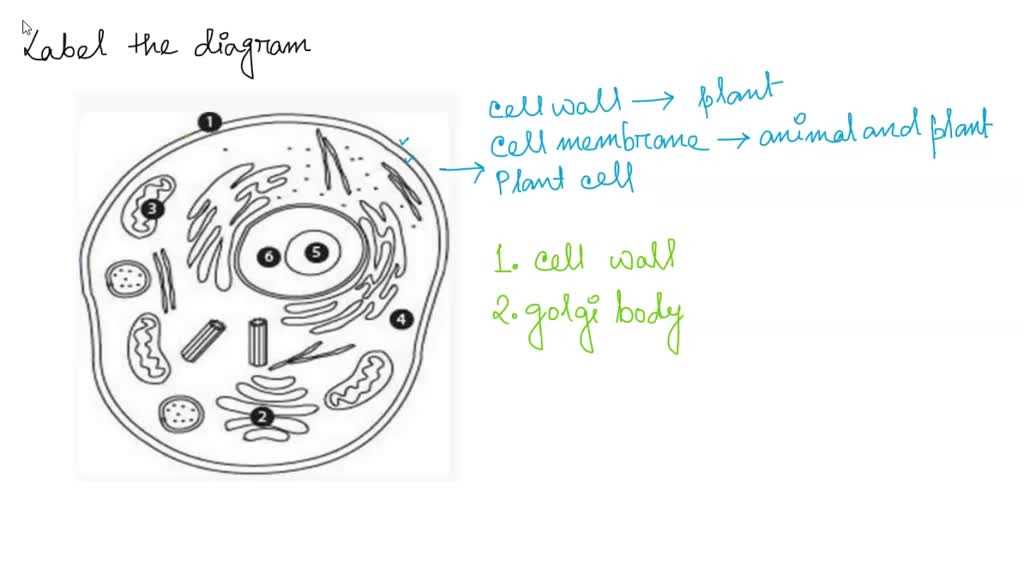 Label the diagram
cell wall → plant
cell membrane → animal and plant
Plant cell
1. cell wall
2. golgi body
1
3
6
5
4
2